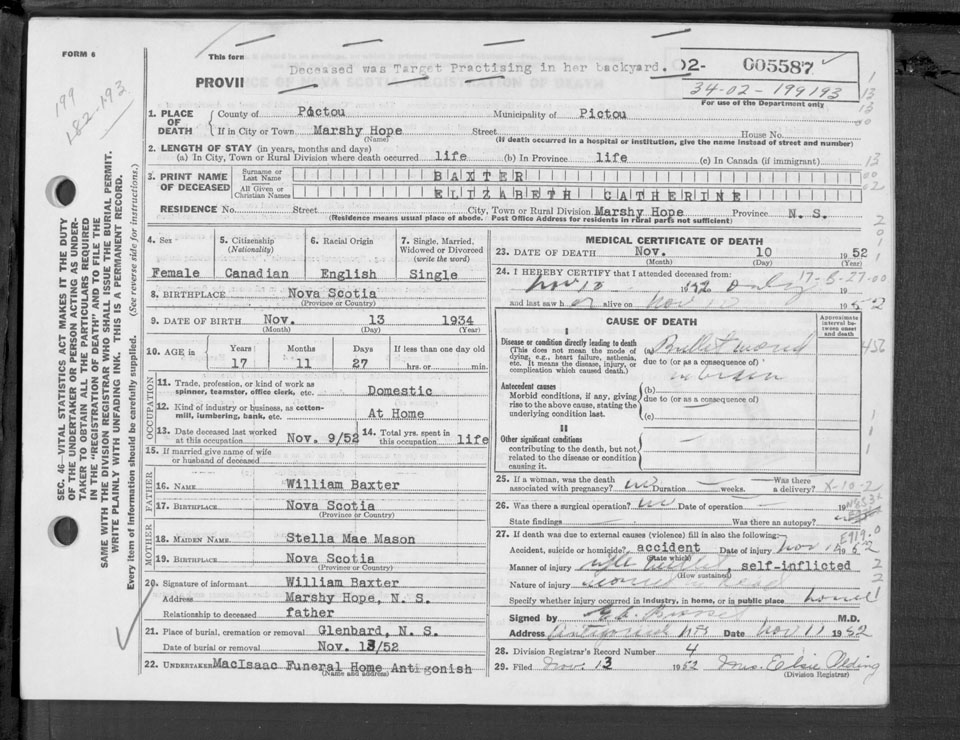 FORM 6
This form
Deceased was Target Practising in her backyard.
02- 005587
PROVINCE OF NOVA SCOTIA
34-02-199193
For use of the Department only
199
182-193
SEC. 46—VITAL STATISTICS ACT MAKES IT THE DUTY
OF THE UNDERTAKER OR PERSON ACTING AS UNDER-
TAKER TO OBTAIN ALL THE PARTICULARS REQUIRED
IN THE "REGISTRATION OF DEATH" AND TO FILE THE
SAME WITH THE DIVISION REGISTRAR WHO SHALL ISSUE THE BURIAL PERMIT.
WRITE PLAINLY WITH UNFADING INK. THIS IS A PERMANENT RECORD.
Every item of Information should be carefully supplied. (See reverse side for instructions.)
1. PLACE OF DEATH
County of Pictou Municipality of Pictou
If in City or Town Marshy Hope Street House No.
(Name) (If death occurred in a hospital or institution, give the name instead of street and number)
2. LENGTH OF STAY (in years, months and days)
(a) In City, Town or Rural Division where death occurred life (b) In Province life (c) In Canada (if immigrant)
3. PRINT NAME OF DECEASED
Surname or Last Name BAXTER
All Given or Christian Names ELIZABETH CATHERINE
RESIDENCE No. Street City, Town or Rural Division Marshy Hope Province N. S.
(Residence means usual place of abode. Post Office Address for residents in rural parts not sufficient)
4. Sex Female
5. Citizenship (Nationality) Canadian
6. Racial Origin English
7. Single, Married, Widowed or Divorced (write the word) Single
8. BIRTHPLACE Nova Scotia
(Province or Country)
9. DATE OF BIRTH Nov. 13 1934
(Month) (Day) (Year)
10. AGE in Years Months Days If less than one day old
17 11 27 hrs. or min.
OCCUPATION
11. Trade, profession, or kind of work as spinner, teamster, office clerk, etc. Domestic
12. Kind of industry or business, as cotton-mill, lumbering, bank, etc. At Home
13. Date deceased last worked at this occupation Nov. 9/52
14. Total yrs. spent in this occupation life
15. If married give name of wife or husband of deceased
FATHER
16. NAME William Baxter
17. BIRTHPLACE Nova Scotia
(Province or Country)
MOTHER
18. MAIDEN NAME Stella Mae Mason
19. BIRTHPLACE Nova Scotia
(Province or Country)
20. Signature of informant William Baxter
Address Marshy Hope, N. S.
Relationship to deceased father
21. Place of burial, cremation or removal Glenbard, N. S.
Date of burial or removal Nov. 13/52
22. UNDERTAKER MacIsaac Funeral Home Antigonish
(Name and address)
MEDICAL CERTIFICATE OF DEATH
23. DATE OF DEATH Nov. 10 1952
(Month) (Day) (Year)
24. I HEREBY CERTIFY that I attended deceased from:
Nov 10 1952 only 19
17-8-27-00
and last saw her alive on Nov 10 1952
CAUSE OF DEATH
Approximate interval between onset and death
I
Disease or condition directly leading to death
(This does not mean the mode of dying, e.g., heart failure, asthenia, etc. It means the disease, injury, or complication which caused death.)
(a) Bullet wound
due to (or as a consequence of)
Antecedent causes
Morbid conditions, if any, giving rise to the above cause, stating the underlying condition last.
(b)
due to (or as a consequence of)
(c)
II
Other significant conditions
contributing to the death, but not related to the disease or condition causing it.
25. If a woman, was the death associated with pregnancy? no Duration weeks. Was there a delivery? X-10-2
26. Was there a surgical operation? no Date of operation 19
State findings Was there an autopsy?
27. If death was due to external causes (violence) fill in also the following: E919.0
Accident, suicide or homicide? accident Date of injury Nov 10 1952
(State which)
Manner of injury rifle bullet, self-inflicted
(How sustained)
Nature of injury
Specify whether injury occurred in industry, in home, or in public place home
Signed by M.D.
Address Antigonish NS Date Nov 11 1952
28. Division Registrar's Record Number 4
29. Filed Nov. 13 1952 Mrs. Elsie Olding
(Division Registrar)